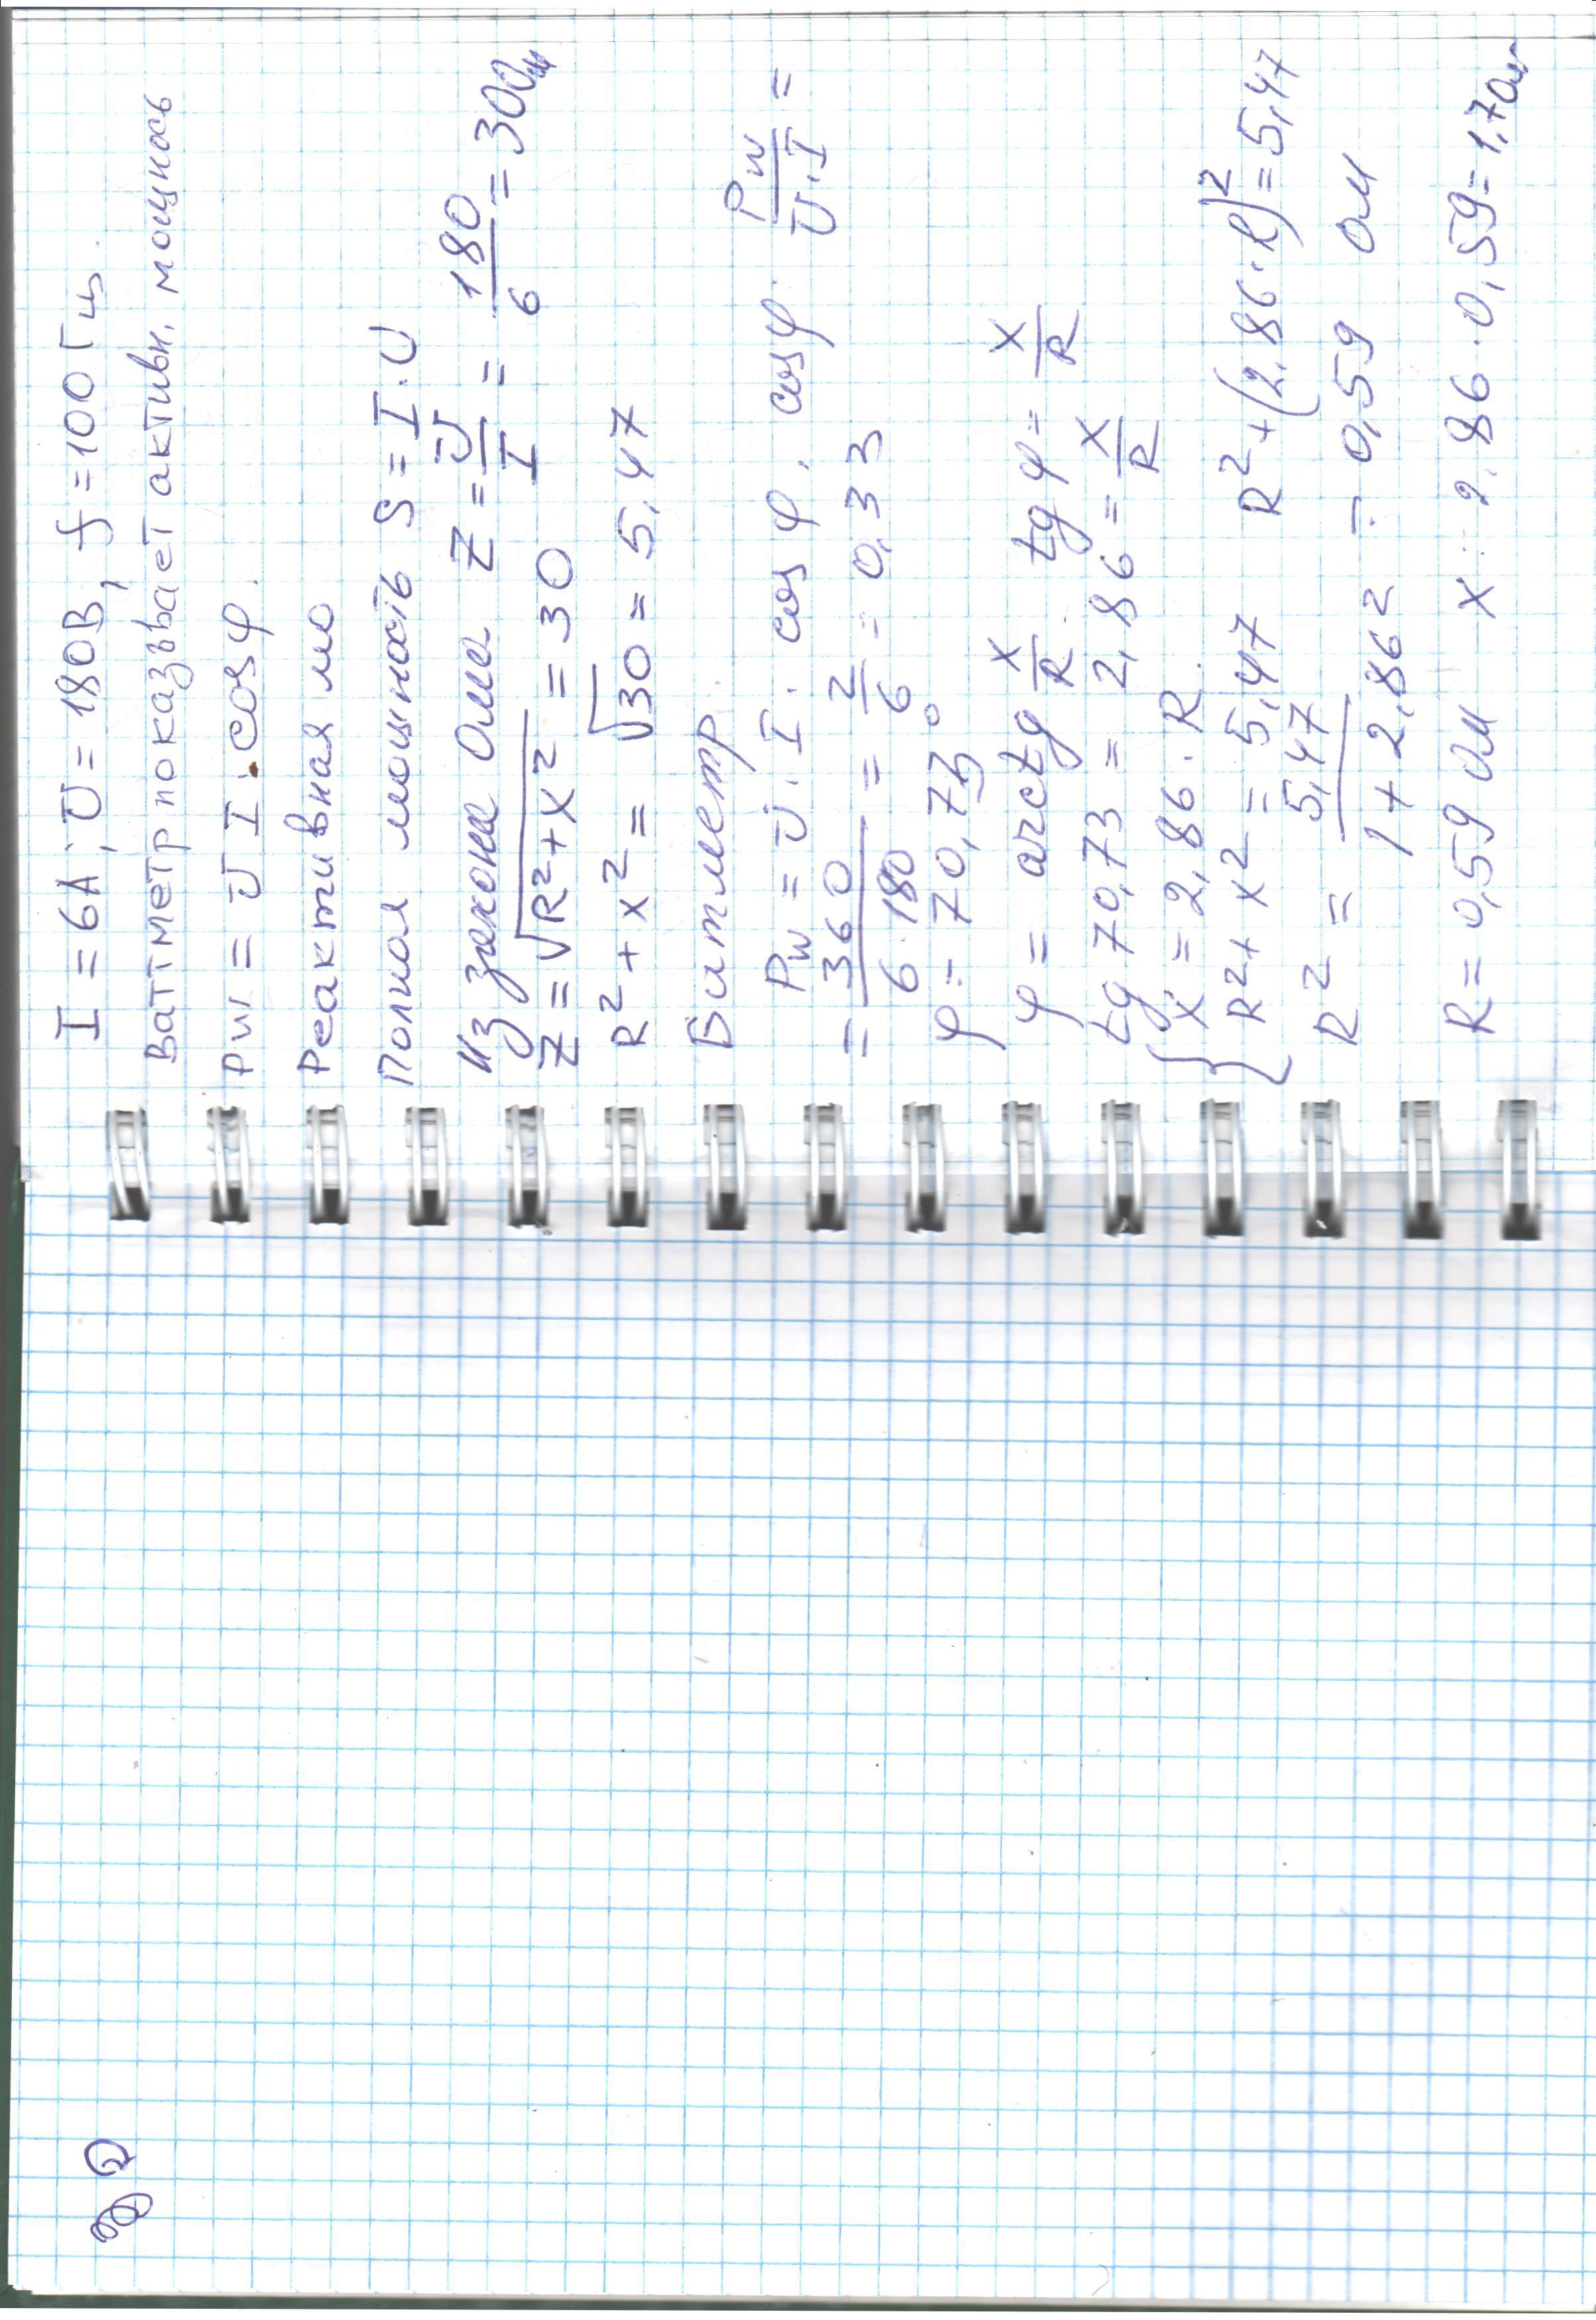 I = 6А; U = 180В, f = 100 Гц.
Ваттметр показывает активн. мощнось
Pw = U I · cosφ.
Реактивная мо
Полная мощность S = I · U
Из закона Ома Z = U/I = 180/6 = 30 Ом
Z = √(R² + X²) = 30
R² + x² = √30 = 5,47
Ватметр.
Pw = U · I · cosφ. cosφ. Pw/U·I =
= 360/6·180 = 2/6 = 0,33
φ = 70,73°
φ = arctg x/R. tgφ = X/R
tg 70,73 = 2,86 = X/R
{ X = 2,86 · R.
R² + x² = 5,47 R² + (2,86 · R)² = 5,47
R² = 5,47/1 + 2,86² = 0,59 Ом
R = 0,59 Ом X = 2,86 · 0,59 = 1,7 Ом